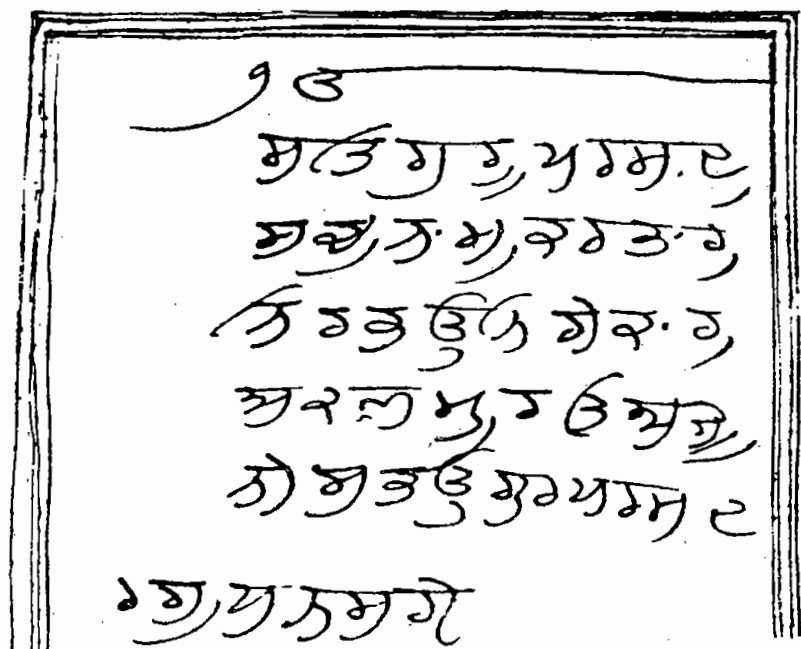 ੴ
ਸਤਿਗੁਰੂ ਪਰਸਾਦੁ
ਸਚੁ ਨਾਮੁ ਕਰਤਾਰੁ
ਨਿਰਭਉ ਨਿਰੀਕਾਰੁ
ਅਕਲ ਮੂਰਤਿ ਅਜੂ
ਨੀ ਸਭਉ ਗੁਰਪਰਸਾਦ
ਰਗੁ ਧਨਸਰੀ